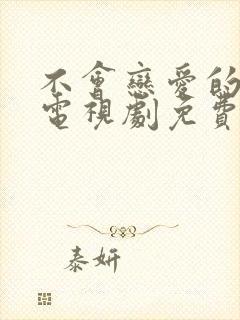 不會戀愛的
電視劇免費
泰妍